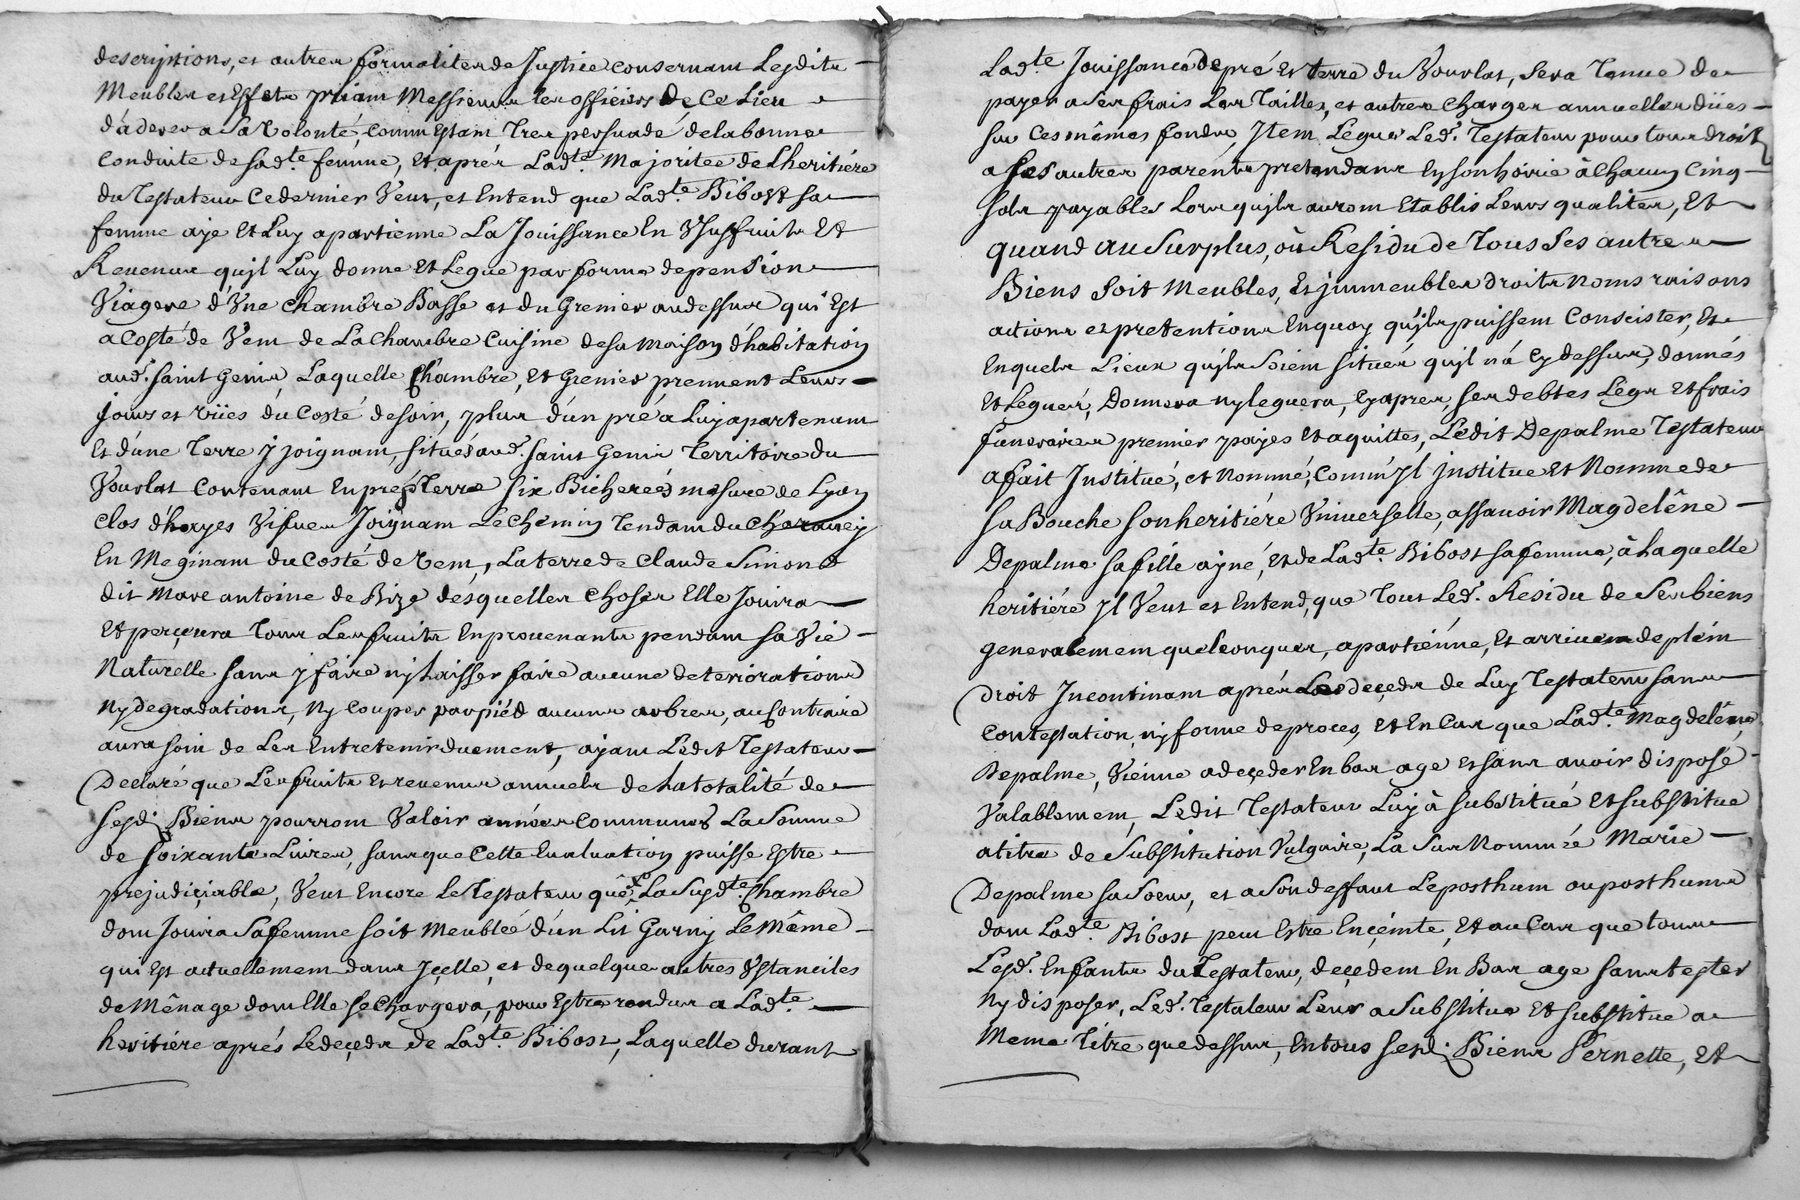 descriptions, et autres formalites de Justice consernant Lesdits
Meubles et Effets priant Messieurs les officiers de Ce Lieu
d'aderer a Sa Volonté, comm Estant Tres persuadé de la bonne
conduite de sadte. femme, Et aprés Ladte. Majoritee de L'heritiére
du Testateur Ce dernier Veut, et Entend que Ladte. Bibost sa
femme aye Et Luy apartienne La Jouissance En Usufruits Et
Revenus qu'jl Luy donne Et Legue par forme de pension
Viagere d'Vne chambre Basse et du Grenier au dessus qui Est
a Costé de Vent de La Chambre Cuisine de sa Maison d'habitation
aud. saint Genis Laquelle Chambre, Et Grenier prennent Leurs
jours et vües du Costé de soir, plus d'un pré a Luy apartenant
Et d'une Terre y joignant, situés aud. saint Genis Territoire du
Vourlat Contenant En pré & Terre six Bicherées mesure de Lyon
clos d'hayes Vifves Joignant Le Chemin Tendant du Charavey
En Meginant du Costé de Vent, La terre de Claude Simond
dit Marc antoine de Bize desquelles choses Elle Jouira
Et perçevra Tous Les fruits En prouenants pendant sa Vie
Naturelle sans y faire ny Laisser faire aucune deteriorations
Ny degradations, Ny Couper par piéd aucuns arbres, au Contraire
aura soin de Les Entretenir duement, ayant Ledit Testateur
Declaré que Les fruits et revenus annuels de La totalité de
sesd. Biens pourront Valoir années communes La Somme
de soixante Livres, sans que Cette Evaluation puisse Estre
prejudiçiable, Veut Encore Le Testateur que La Susdte. Chambre
dont Jouira Sa femme soit Meublée d'un Lit Garny Le Même
qui Est actuellement dans Jçelle, et de quelques autres Vstanciles
de Mênage dont Elle se Chargera, pour Estre rendus a Ladte.
heritiére aprés Le deçeds de Ladte. Bibost, Laquelle durant
Ladte. Jouissance de pré Et terre du Vourlat, Sera Tenue de
payer a Ses frais Les Tailles, et autres Charges annuelles dües
sur Ces mêmes fonds, Jtem Legue Led. Testateur pour tous droits
a ses autres parents pretendants En son hoirie à Chacun Cinq
sols payables Lors qu'jls auront Etablis Leurs qualites, Et
quand au Surplus, où Residu de Tous Ses autres
Biens Soit Meubles, Et jmmeubles droits Noms raisons
actions et pretentions En quoy qu'jls puissent Conscister, Et
En quels Lieux qu'jls Soient situés qu'jl n'a Cy dessus, donnés
Et Legués, Donnera ny leguera, Cy apres, ses debtes Legs Et frais
funeraires premier payes Et aquittes, Ledit Depalme Testateur
a fait Jnstitué, et Nommé, Comm'Jl jnstitue Et Nomme de
sa Bouche son heritiére Vniverselle, assavoir Magdelêne
Depalme sa fille aÿné, Et de Ladte. Bibost sa femme, à Laquelle
heritiére Jl Veut et Entend, que Tout Led. Residu de Ses biens
generalement quelconques, apartiénne, Et arrive de plein
droit Jncontinant aprés Le deçeds de Luy Testateur sans
contestation, ny forme de proces, Et En Cas que Ladte. Magdelêne
Depalme, Viénne a deçeder En bas age Et sans avoir disposé
Valablement, Ledit Testateur Luy à substitué Et substitue
a titre de Substitution Vulgaire, La Sus Nommée Marie
Depalme sa Soeur, et a Son deffaut Le posthum ou posthume
dont Ladte. Bibost peut Estre Enceinte, Et au Cas que tous
Lesd. Enfants du Testateur, deçedent En Bas age sans tester
Ny disposer, Led. Testateur Leur a Substitué Et substitue a
Meme Titre que dessus, En tous sesd. Biens Pernette, Et